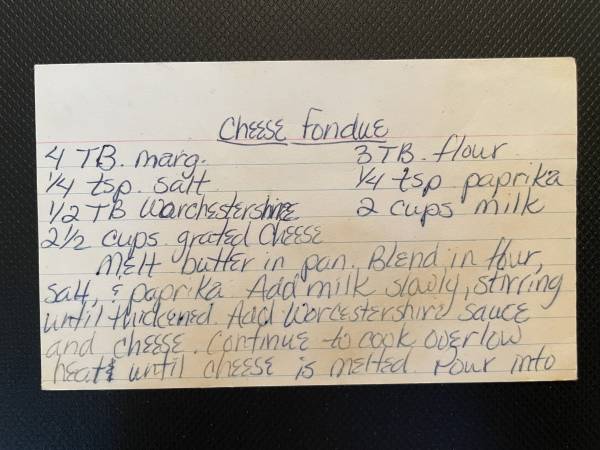 Cheese Fondue
4 TB. marg. 3 TB. flour
1/4 tsp. salt 1/4 tsp paprika
1/2 TB Warchestershire 2 cups milk
2 1/2 cups grated cheese
Melt butter in pan. Blend in flour,
salt, & paprika. Add milk slowly, stirring
until thickened. Add Worcestershire sauce
and cheese. Continue to cook over low
heat until cheese is melted. Pour into